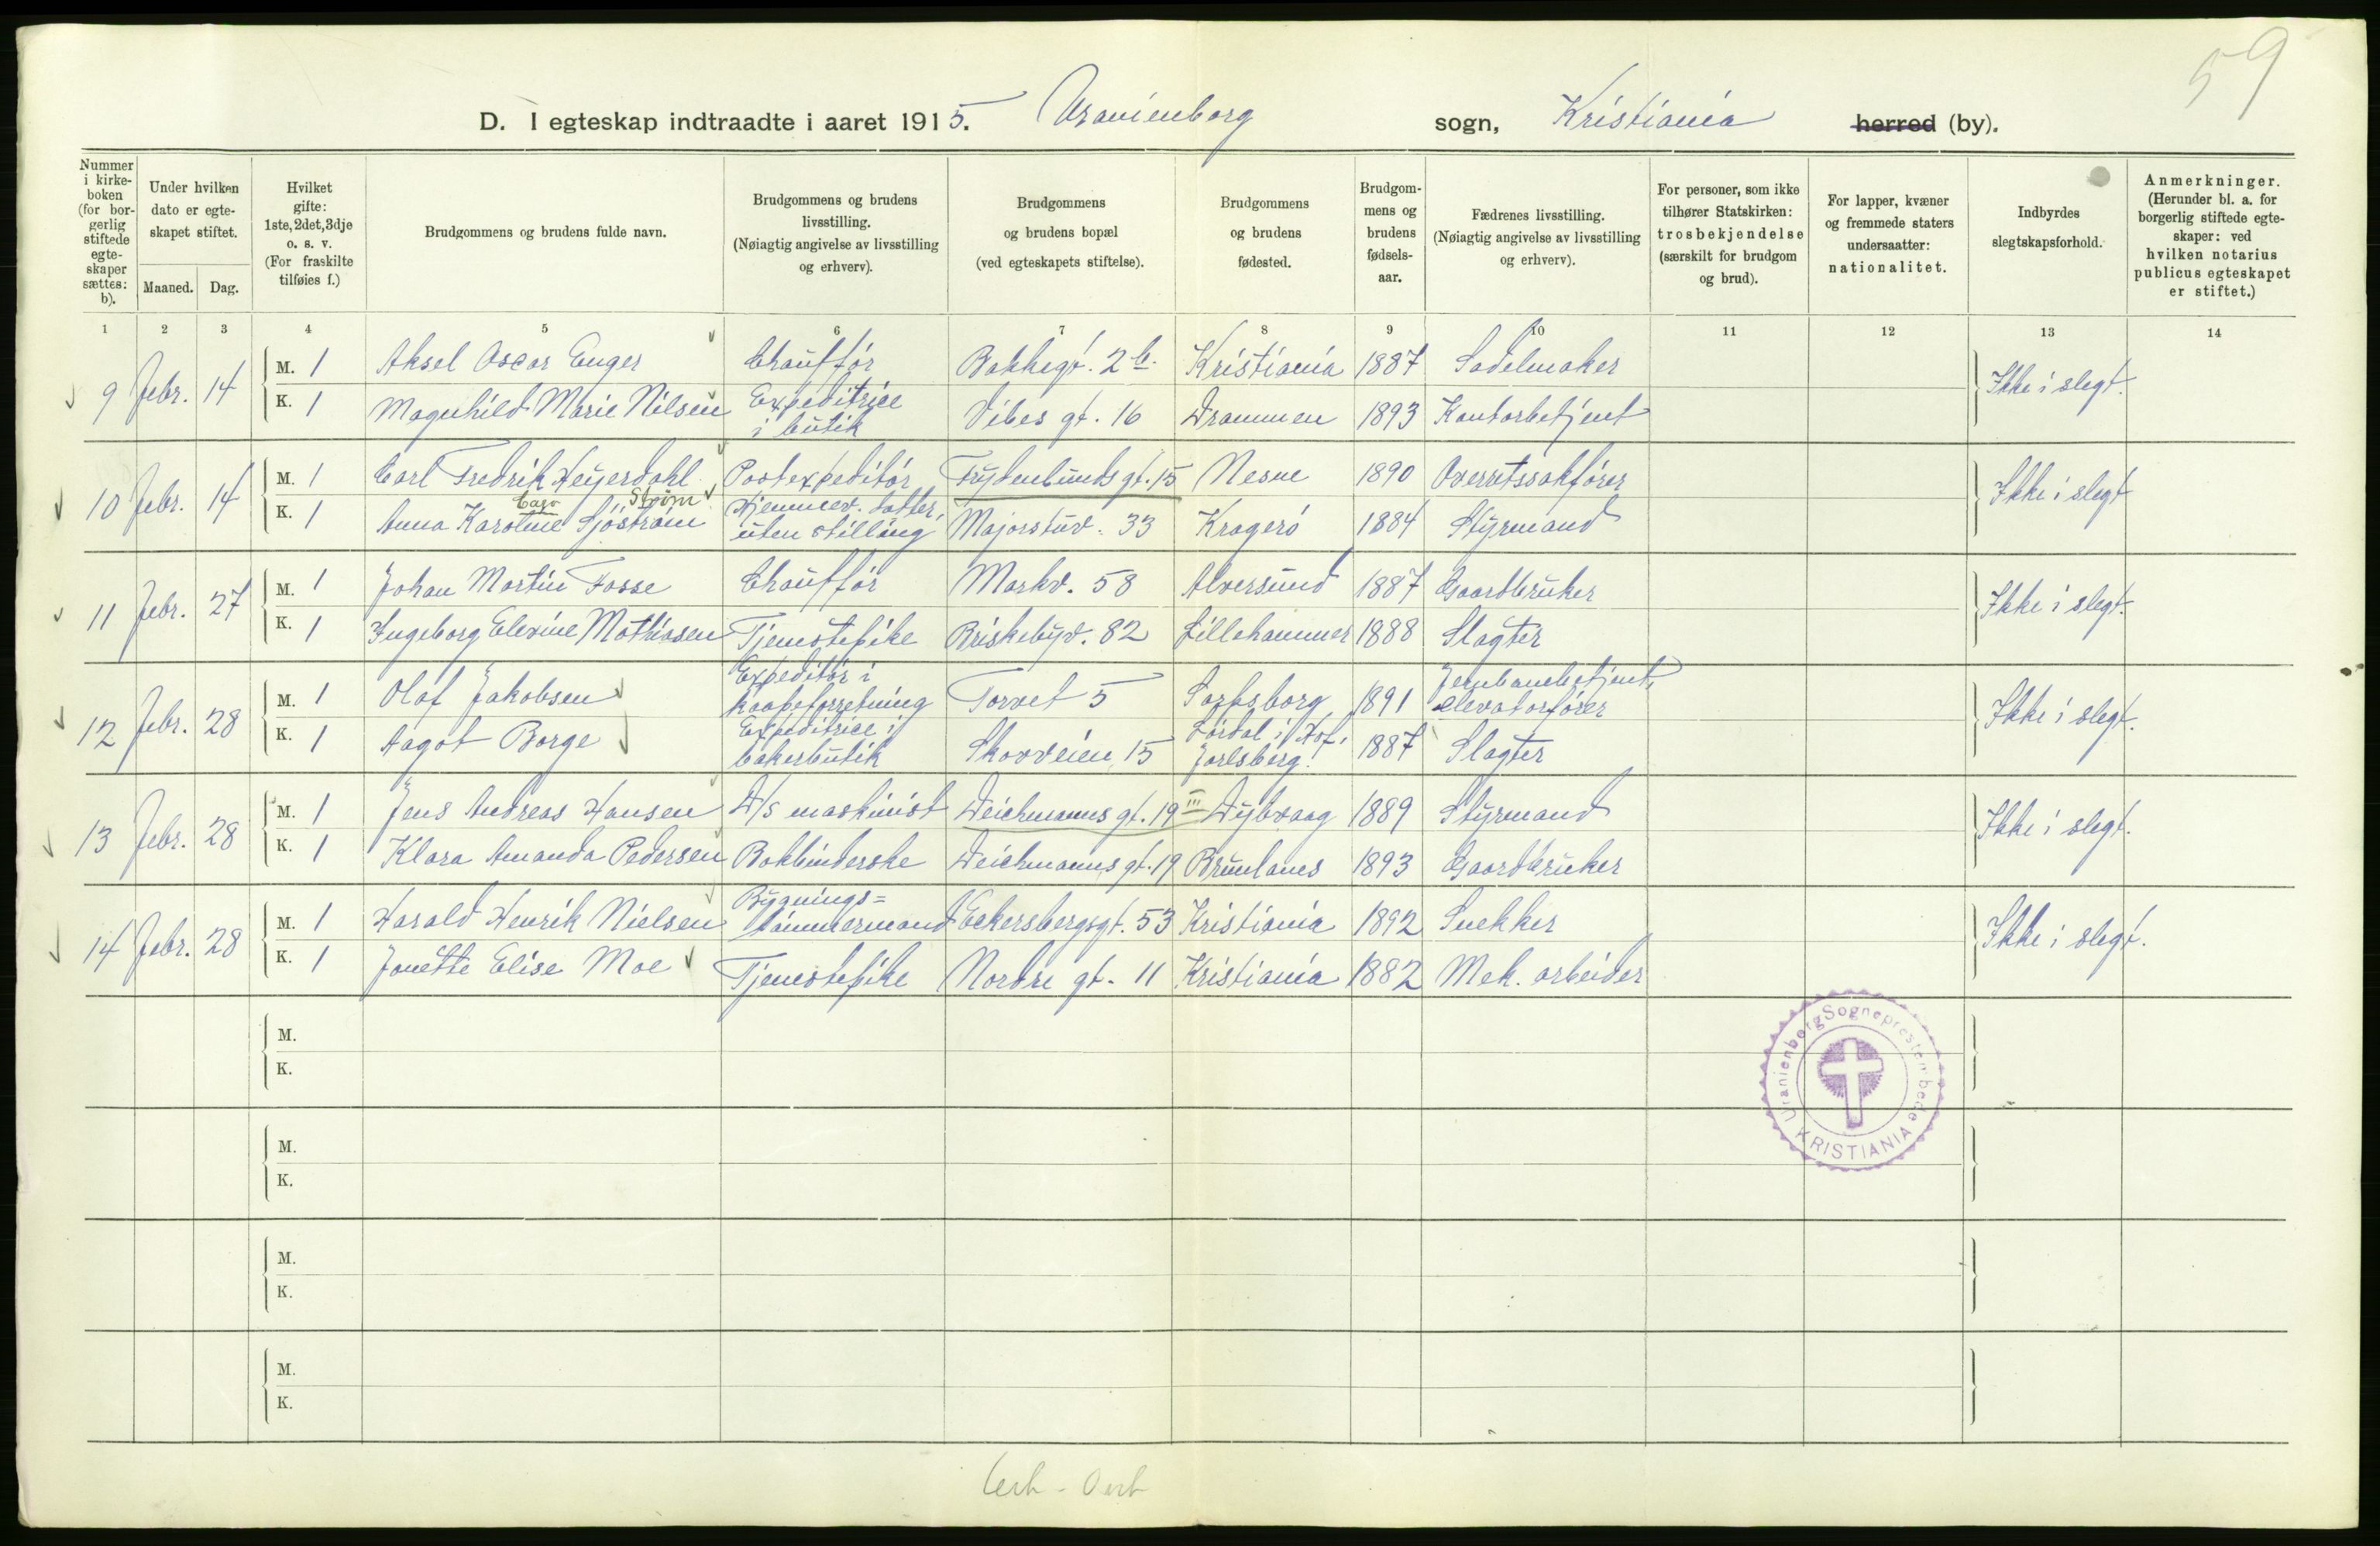 59
D. I egteskap indtraadte i aaret 1915. Uranienborg sogn, Kristiania herred (by).
Nummer i kirkeboken (for borgerlig stiftede egteskaper sættes: b).
Under hvilken dato er egteskapet stiftet.
Maaned. Dag.
Hvilket gifte: 1ste, 2det, 3dje o. s. v. (For fraskilte tilføies f.)
Brudgommens og brudens fulde navn.
Brudgommens og brudens livsstilling. (Nøiagtig angivelse av livsstilling og erhverv).
Brudgommens og brudens bopæl (ved egteskapets stiftelse).
Brudgommens og brudens fødested.
Brudgommens og brudens fødselsaar.
Fædrenes livsstilling. (Nøiagtig angivelse av livsstilling og erhverv).
For personer, som ikke tilhører Statskirken: trosbekjendelse (særskilt for brudgom og brud).
For lapper, kvæner og fremmede staters undersaatter: nationalitet.
Indbyrdes slegtskapsforhold.
Anmerkninger. (Herunder bl. a. for borgerlig stiftede egteskaper: ved hvilken notarius publicus egteskapet er stiftet.)
1 2 3 4 5 6 7 8 9 10 11 12 13 14
9 Febr. 14 M. 1 Aksel Oscar Enger Chauffør Bakkegt. 2 b. Kristiania 1887 Sadelmaker Ikke i slegt.
K. 1 Magnhild Marie Nilsen Expeditrice i butik Vibes gt. 16 Drammen 1893 Kontorbetjent
10 Febr. 14 M. 1 Carl Fredrik Heyerdahl Postexpeditør Frydenlunds gt. 15 Nesne 1890 Overretssakfører Ikke i slegt
Caro Strøm
K. 1 Anna Karoline Sjøstrøm Hjemmev. datter, uten stilling Majorstuv. 33 Kragerø 1884 Styrmand
11 Febr. 27 M. 1 Johan Martin Fosse Chauffør Markv. 58 Alversund 1887 Gaardbruker Ikke i slegt.
K. 1 Ingeborg Elevine Mathissen Tjenestepike Briskebyv. 82 Lillehammer 1888 Slagter
12 Febr. 28 M. 1 Olaf Jakobsen Expeditør i kaapeforretning Torvet 5 Sarpsborg 1891 Jernbanebetjent, elevatorfører Ikke i slegt.
K. 1 Aagot Borge Expeditrice i bakerbutik Skovveien 15 i Hof, Jarlsberg. 1887 Slagter
13 Febr. 28 M. 1 Jens Andreas Hansen D/s maskinist Deichmanns gt. 19 III Dybvaag 1889 Styrmand Ikke i slegt.
K. 1 Klara Amanda Pedersen Bokbinderske Deichmanns gt. 19 Brunlanes 1893 Gaardbruker
14 Febr. 28 M. 1 Harald Henrik Nielsen Bygnings=tømmermand Eckersbergsgt. 53 Kristiania 1892 Snekker Ikke i slegt.
K. 1 Jonette Elise Moe Tjenestepike Nordre gt. 11 Kristiania 1882 Mek. arbeider
M.
K.
M.
K.
M.
K.
M.
K.
Uranienborg Sogneprestembede
KRISTIANIA